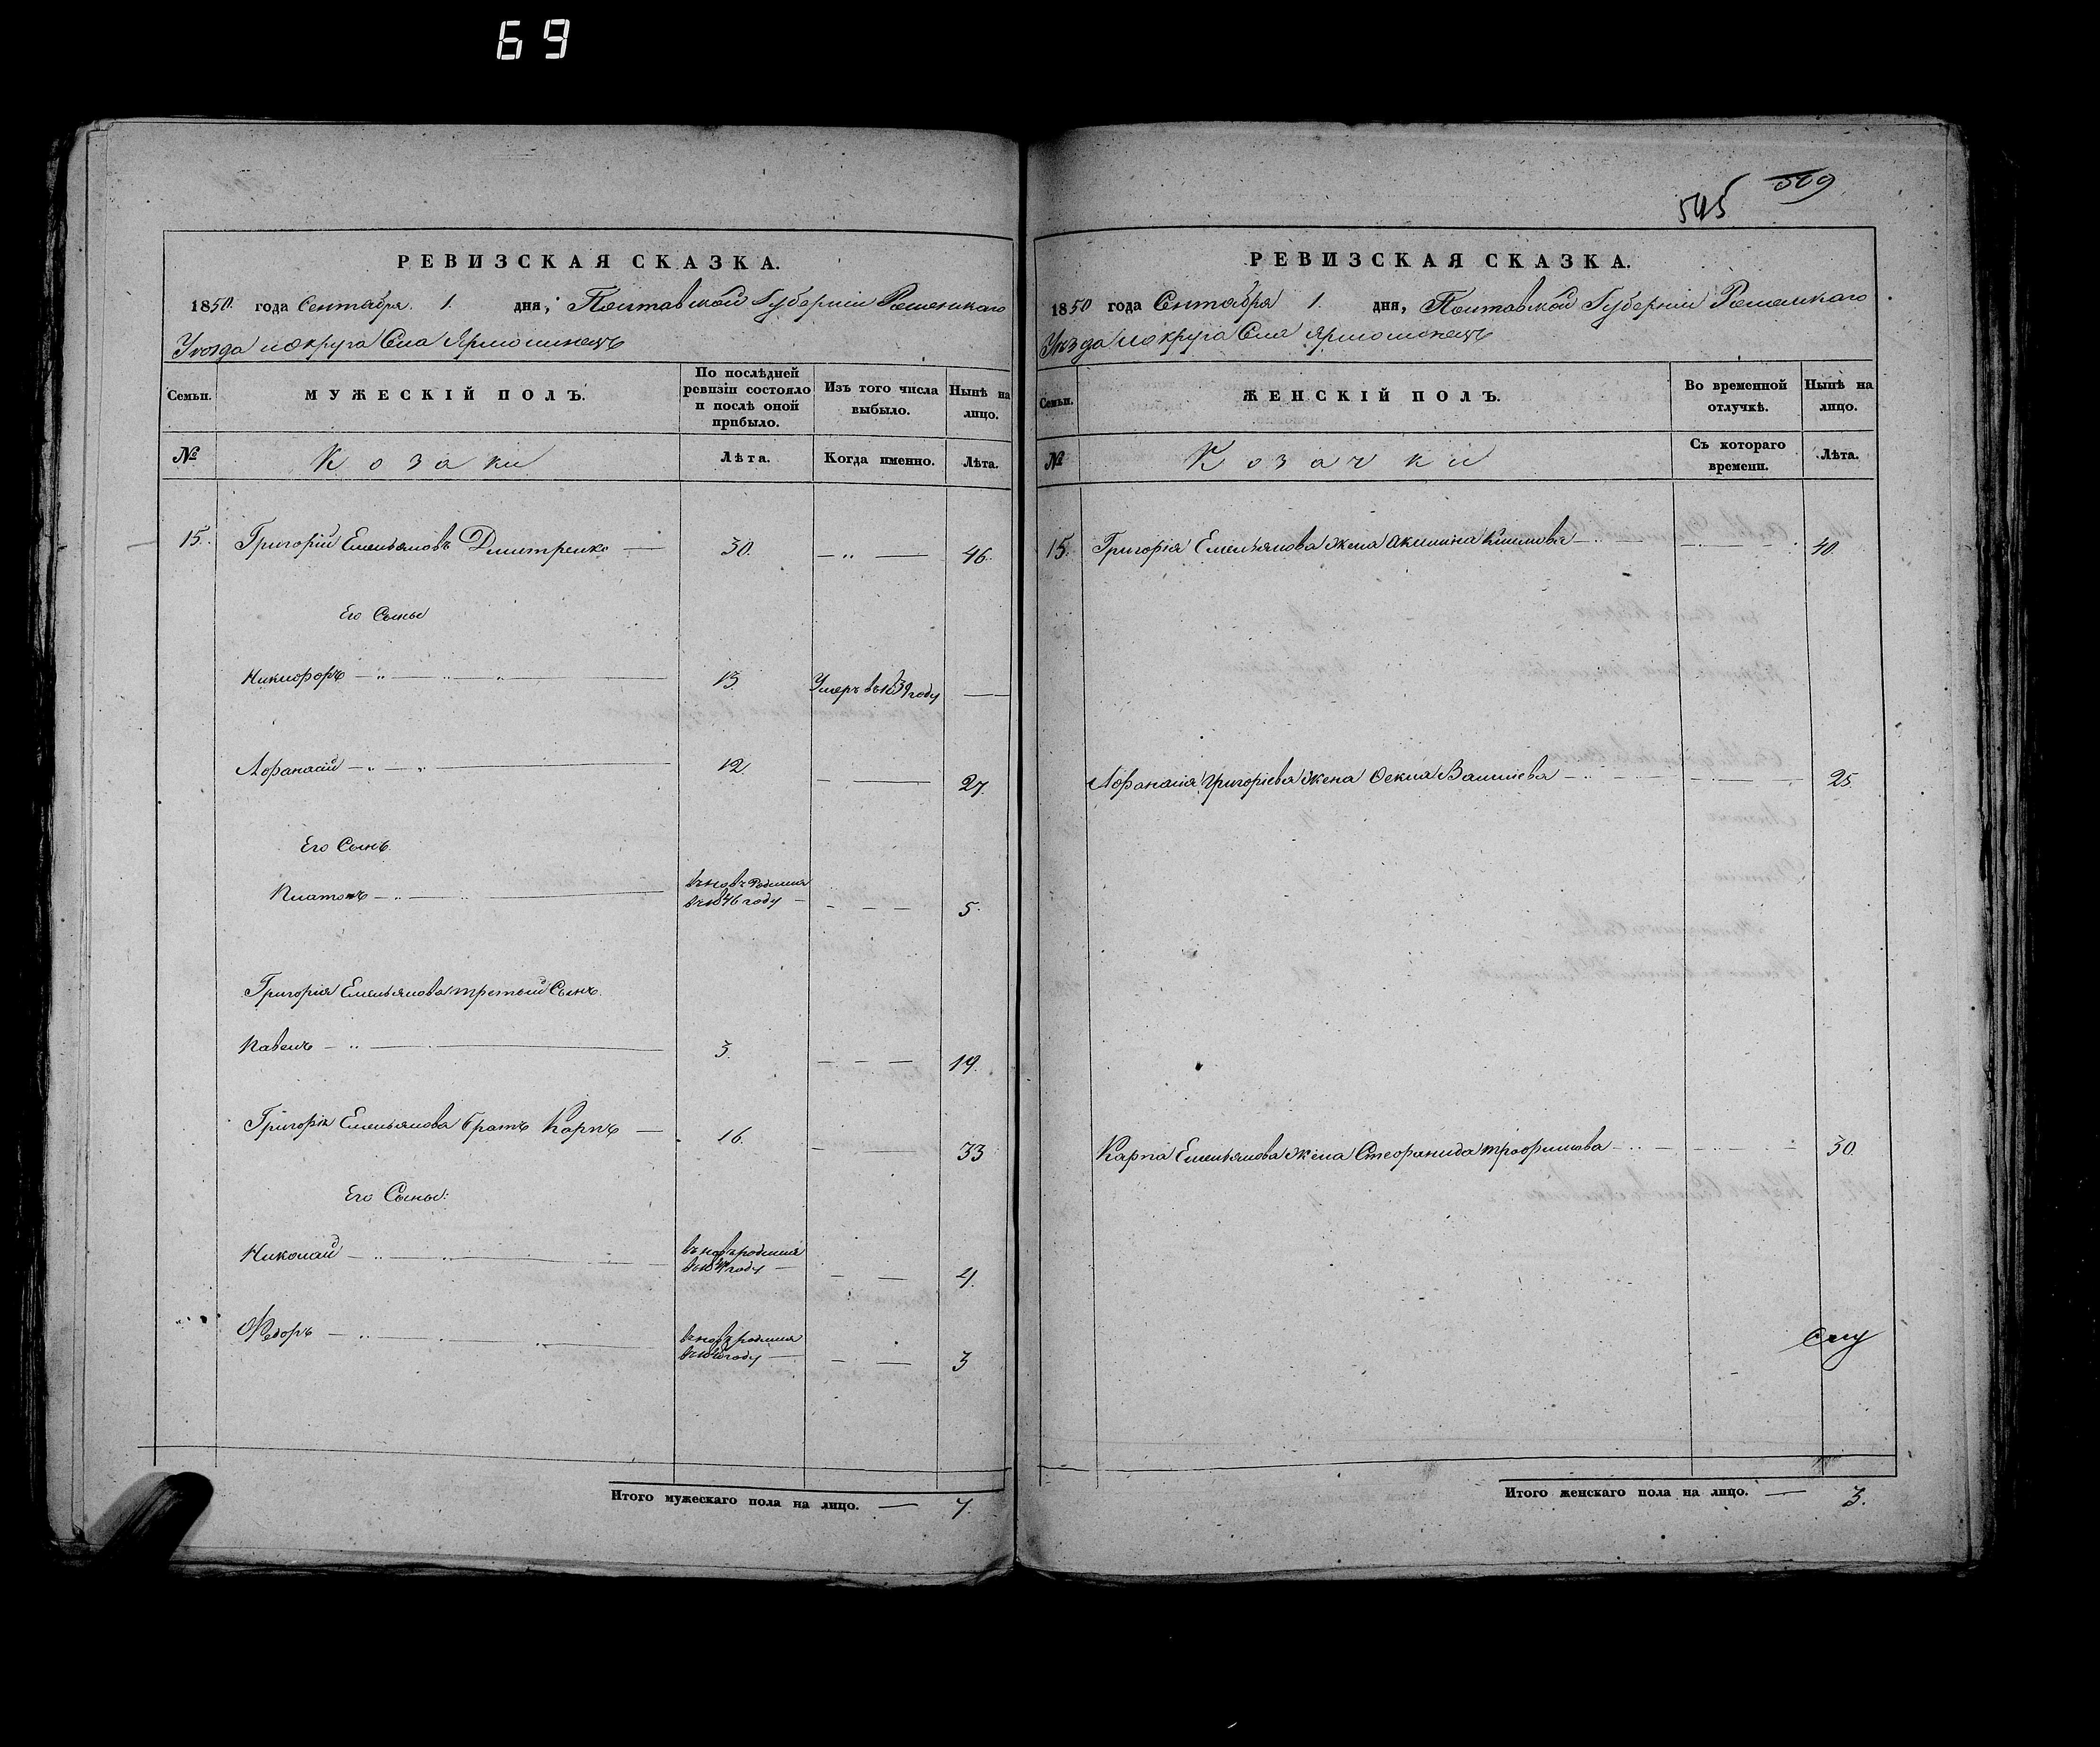 69
РЕВИЗСКАЯ СКАЗКА.
1850 года Сентября 1. дня, Полтавской Губернии Роменскаго
Уезда и округа Села Ярмолинецъ
Семьи. МУЖЕСКІЙ ПОЛЪ. По послѣдней ревизіи состояло и послѣ оной прибыло. Изъ того числа выбыло. Нынѣ на лицо.
№ Козаки Лѣта. Когда именно. Лѣта.
15. Григорій Емельяновъ Дмитренко 30. 46.
Его Сыны
Никифоръ 13. Умеръ въ 1839 году
Афанасій 12. 27.
Его Сынъ.
Платонъ вновь родился въ 1846 году 5.
Григорія Емельянова третьій Сынъ.
Павелъ 3. 19.
Григорія Емельянова братъ Карпъ 16. 33
Его Сыны:
Николай вновь родился году 4.
Федоръ вновь родился году 3
Итого мужескаго пола на лицо. 7.
545 509
РЕВИЗСКАЯ СКАЗКА.
1850 года Сентября 1. дня, Полтавской Губерніи Роменскаго
Уезда и округа Села Ярмолинецъ
Семьи. ЖЕНСКІЙ ПОЛЪ. Во временной отлучкѣ. Нынѣ на лицо.
№ Козачки Съ котораго времени. Лѣта.
15. Григорія Емельянова жена Акилина 40.
Афанасія Григоріева жена 25.
Карпа Емельянова жена Стефанида Трофимова 30.
Итого женскаго пола на лицо. 3.